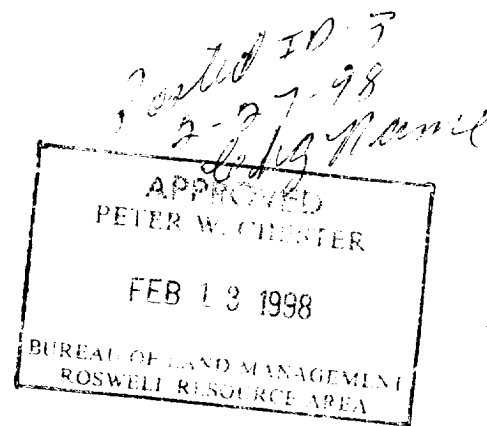 Posted ID-3
2-27-98
chg name
APPROVED
PETER W. CHESTER
FEB 13 1998
BUREAU OF LAND MANAGEMENT
ROSWELL RESOURCE AREA